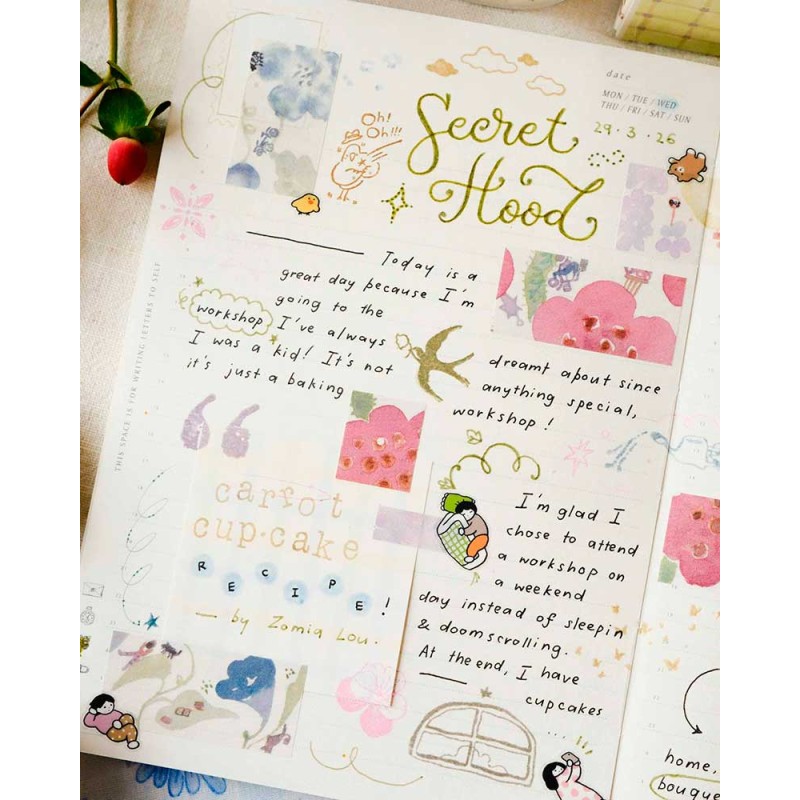 date
MON / TUE / WED
THU / FRI / SAT / SUN
29 · 3 · 26
Secret
Hood
Oh!
Oh!!!
Today is a
great day because I'm
going to the
workshop I've always
I was a kid! It's not
it's just a baking
dreamt about since
anything special,
workshop!
THIS SPACE IS FOR WRITING LETTERS TO SELF
“
carrot
cup·cake
RECIPE!
— by Zamia Lou.
I'm glad I
chose to attend
a workshop on
a weekend
day instead of sleepin
& doomscrolling.
At the end, I have
cupcakes
home,
bouque